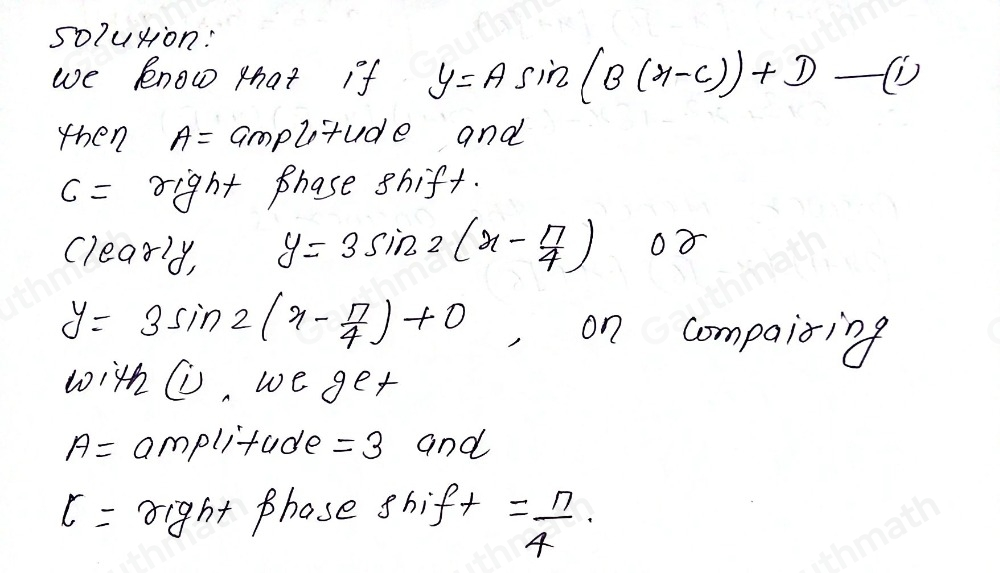 Solution:
we know that if y = A sin (B (x-c)) + D —(i)
then A = amplitude and
C = right phase shift.
Clearly, y = 3 sin 2 (x - π/4) or
y = 3 sin 2 (x - π/4) + 0 , on compairing
with (i), we get
A = amplitude = 3 and
C = right phase shift = π/4.